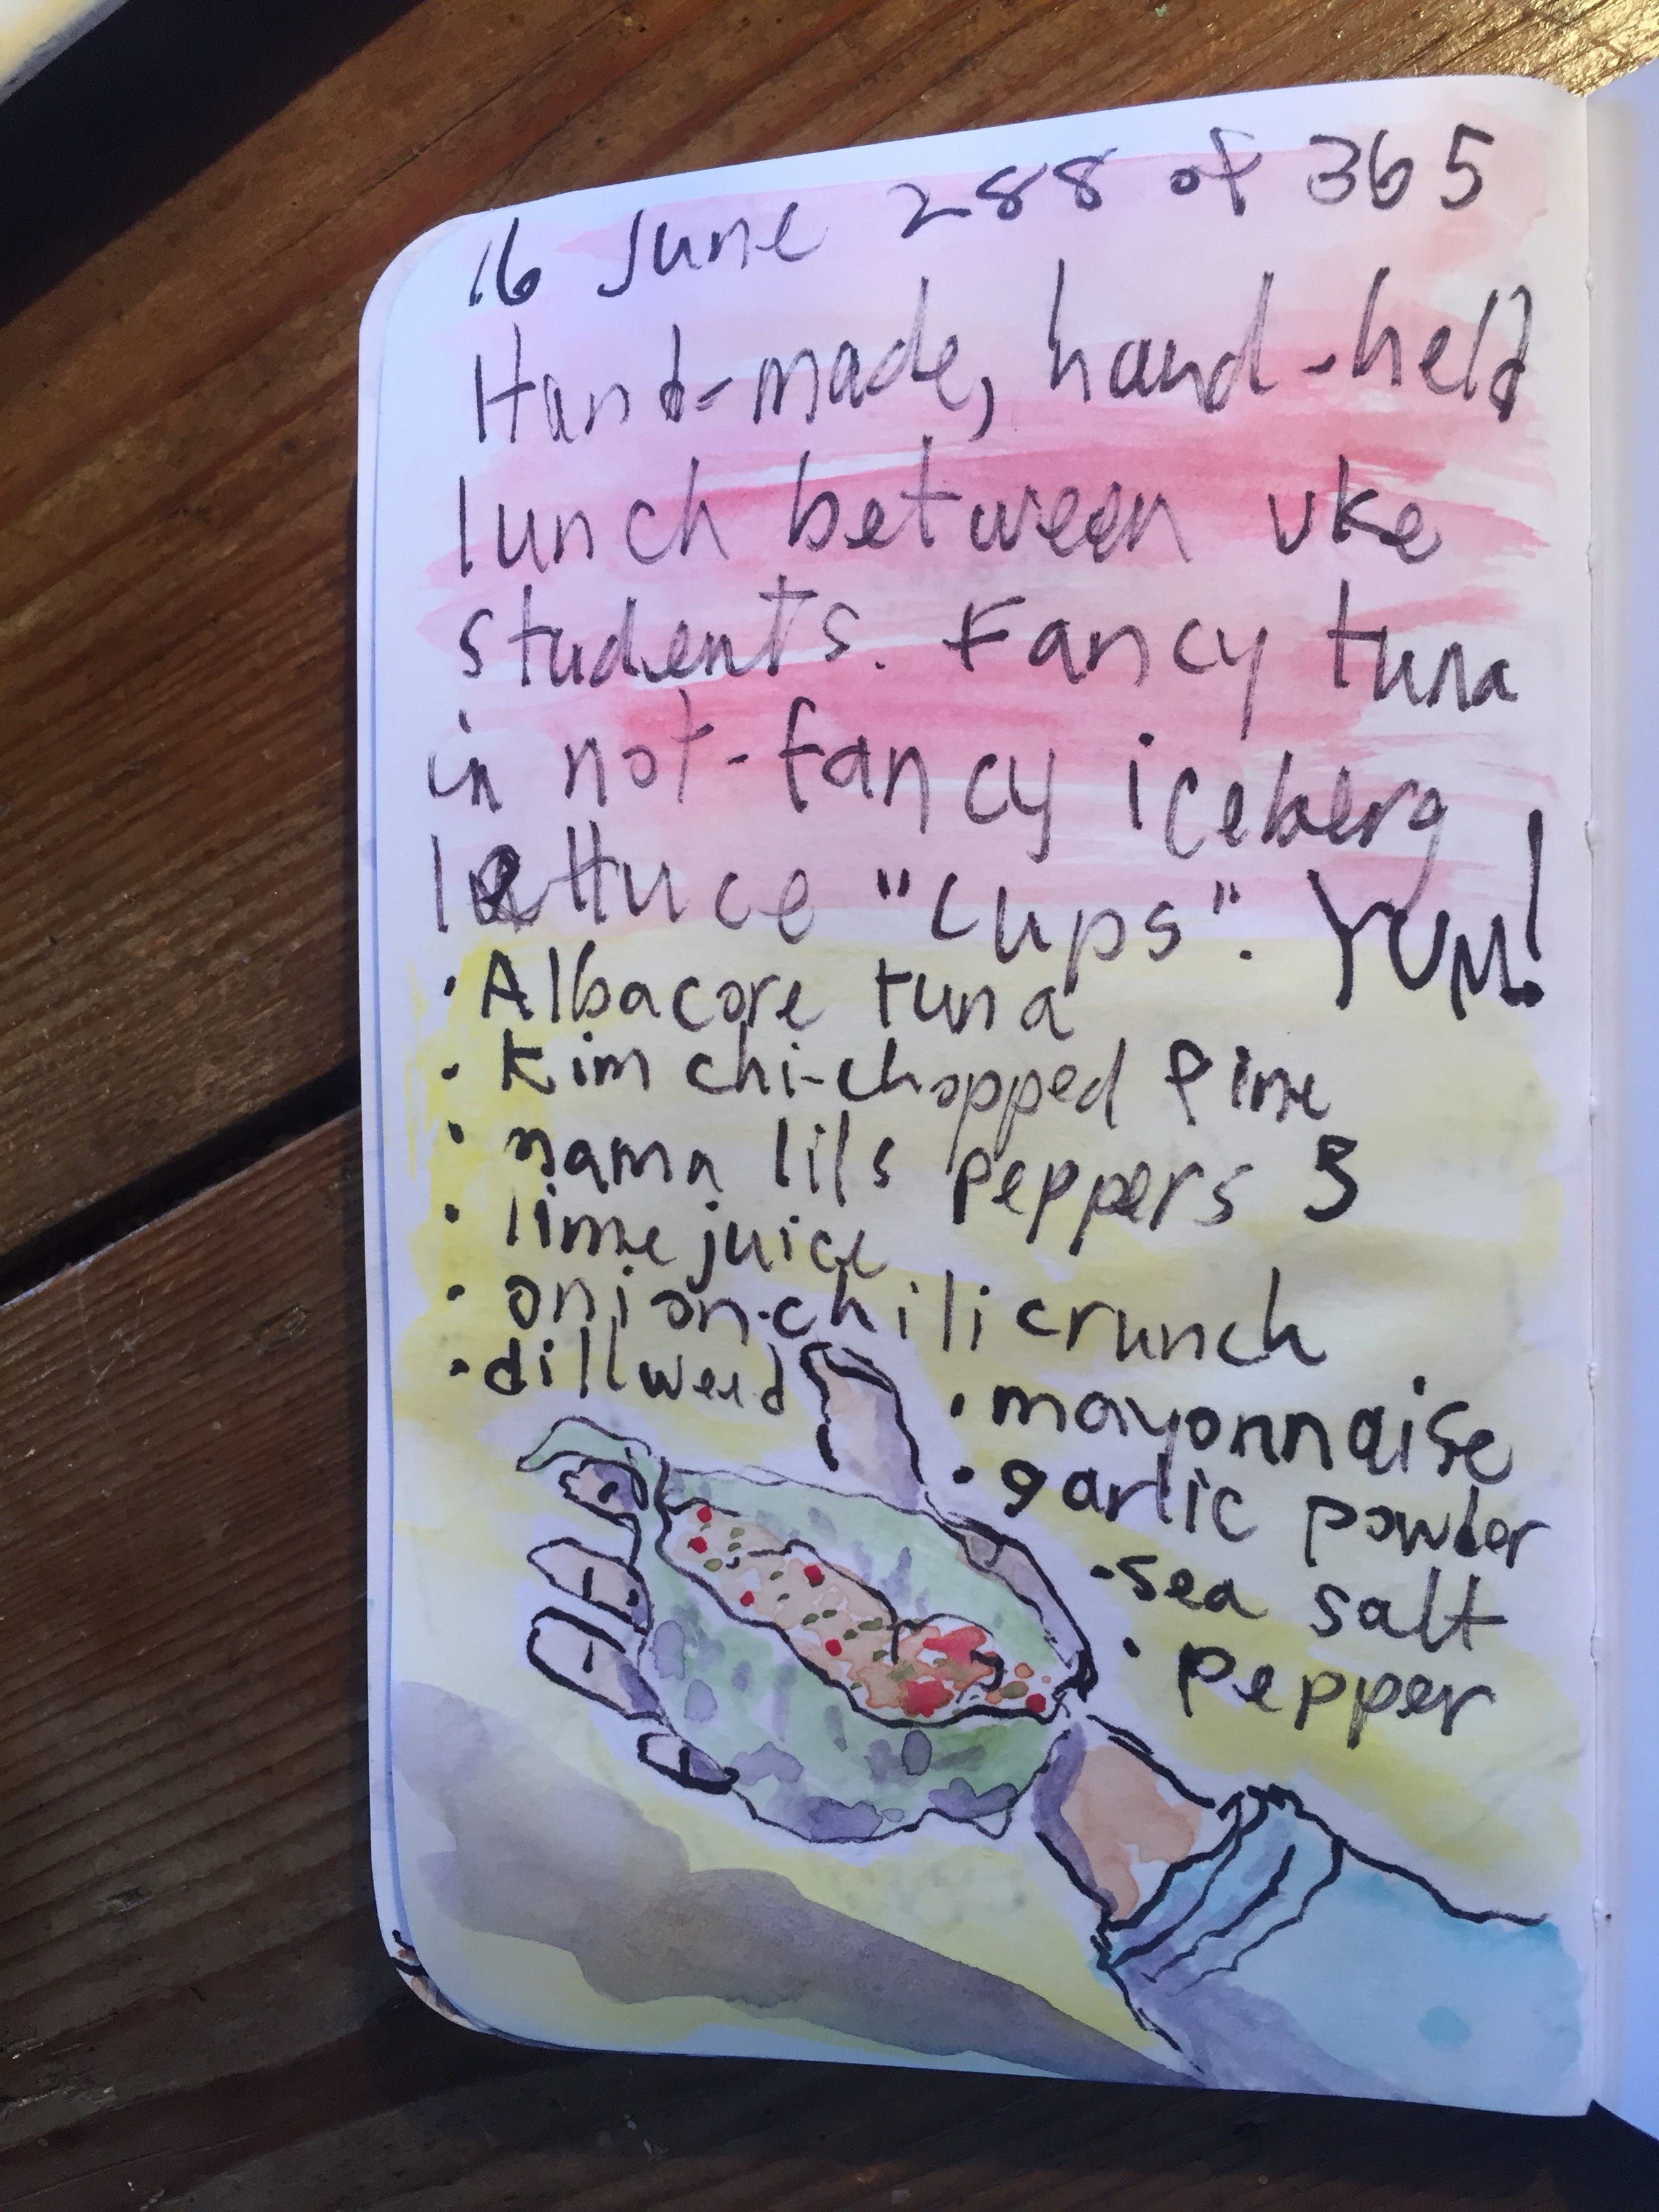 16 June 288 of 365
Hand-made, hand-held
lunch between uke
students. Fancy tuna
in not-fancy iceberg
lettuce "cups". YUM!
· Albacore tuna
· Kim chi-chopped fine
· mama lils peppers 5
· lime juice
· onion-chili crunch
· dillweed
· mayonnaise
· garlic powder
· sea salt
· pepper